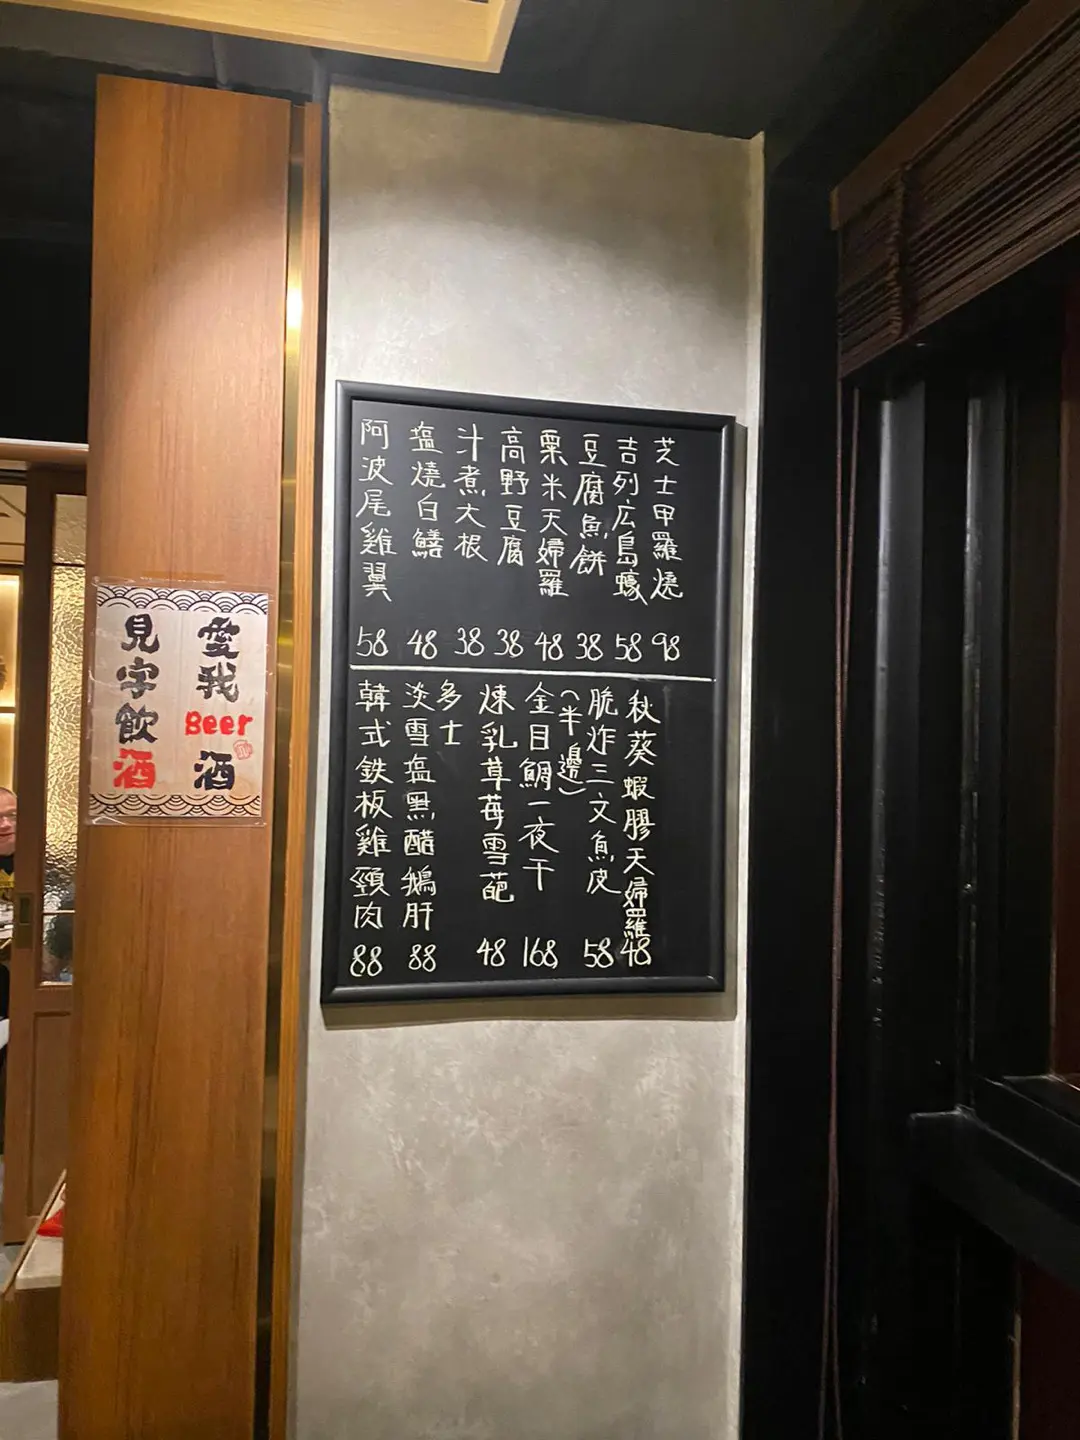 芝士甲羅燒 98
吉列広島蠔 58
豆腐魚餅 38
粟米天婦羅 48
高野豆腐 38
汁煮大根 38
塩燒白鱔 48
阿波尾雞翼 58
秋葵蝦膠天婦羅 48
脆炸三文魚皮 58
(半邊)
金目鯛一夜干 168
煉乳草莓雪葩 48
多士
淡雪塩黑醋鵝肝 88
韓式鉄板雞頸肉 88
愛我Beer酒
見字飲酒